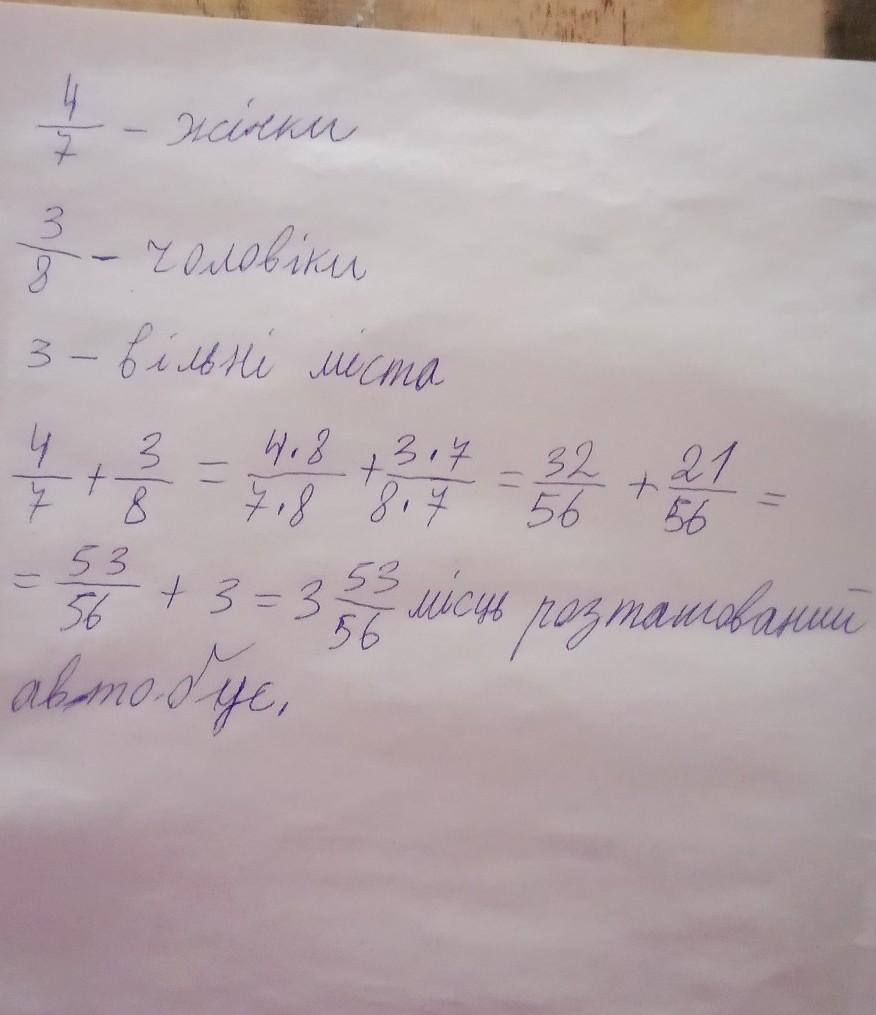 4/7 - жінки
3/8 - чоловіки
3 - вільні міста
4/7 + 3/8 = 4·8/7·8 + 3·7/8·7 = 32/56 + 21/56 =
= 53/56 + 3 = 3 53/56 місць розташований
автобус.